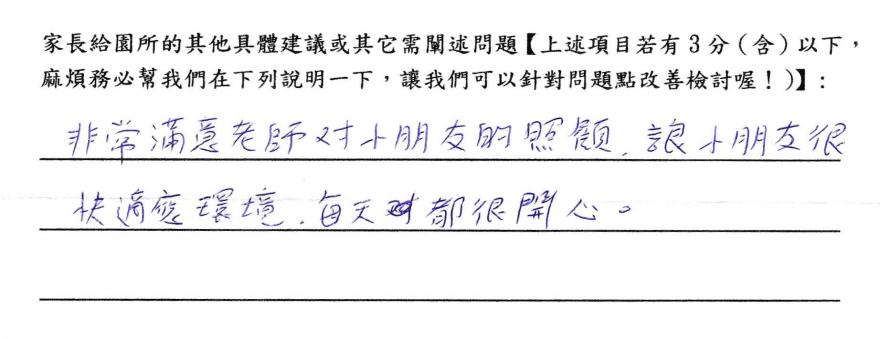 家長給園所的其他具體建議或其它需闡述問題【上述項目若有3分(含)以下，
麻煩務必幫我們在下列說明一下，讓我們可以針對問題點改善檢討喔！)】：
非常滿意老師对小朋友的照顧，讓小朋友很
快適應環境，每天都很開心。